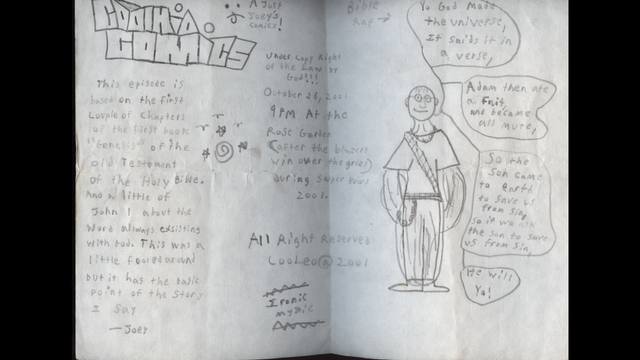 COOMIO
COMICS
A Just
Joey's
Comics!
This episode is
based on the first
couple of Chapters
of the first book
"Genesis" of the
old Testament
of the Holy Bible.
And a little of
John 1 about the
Word always exsisting
with God. This was a
little fooled around
but it has the basic
point of the story
I say
—Joey
Under Copy Right
of the Law by
God!!!
October 26, 2001
9PM At the
Rose Garden
(after the blazers
win over the gries)
During Super Bowl
2001.
All Right Reserved
LooLeo@2001
Ironic
mystic
Bible
Rap →
Yo God made
the universe,
It saids it in
a verse,
Adam then ate
a fruit,
and became
all mute,
So the
son came
to Earth
to save us
from sin,
so if we ask
the son to save
us from sin,
He will
Ya!